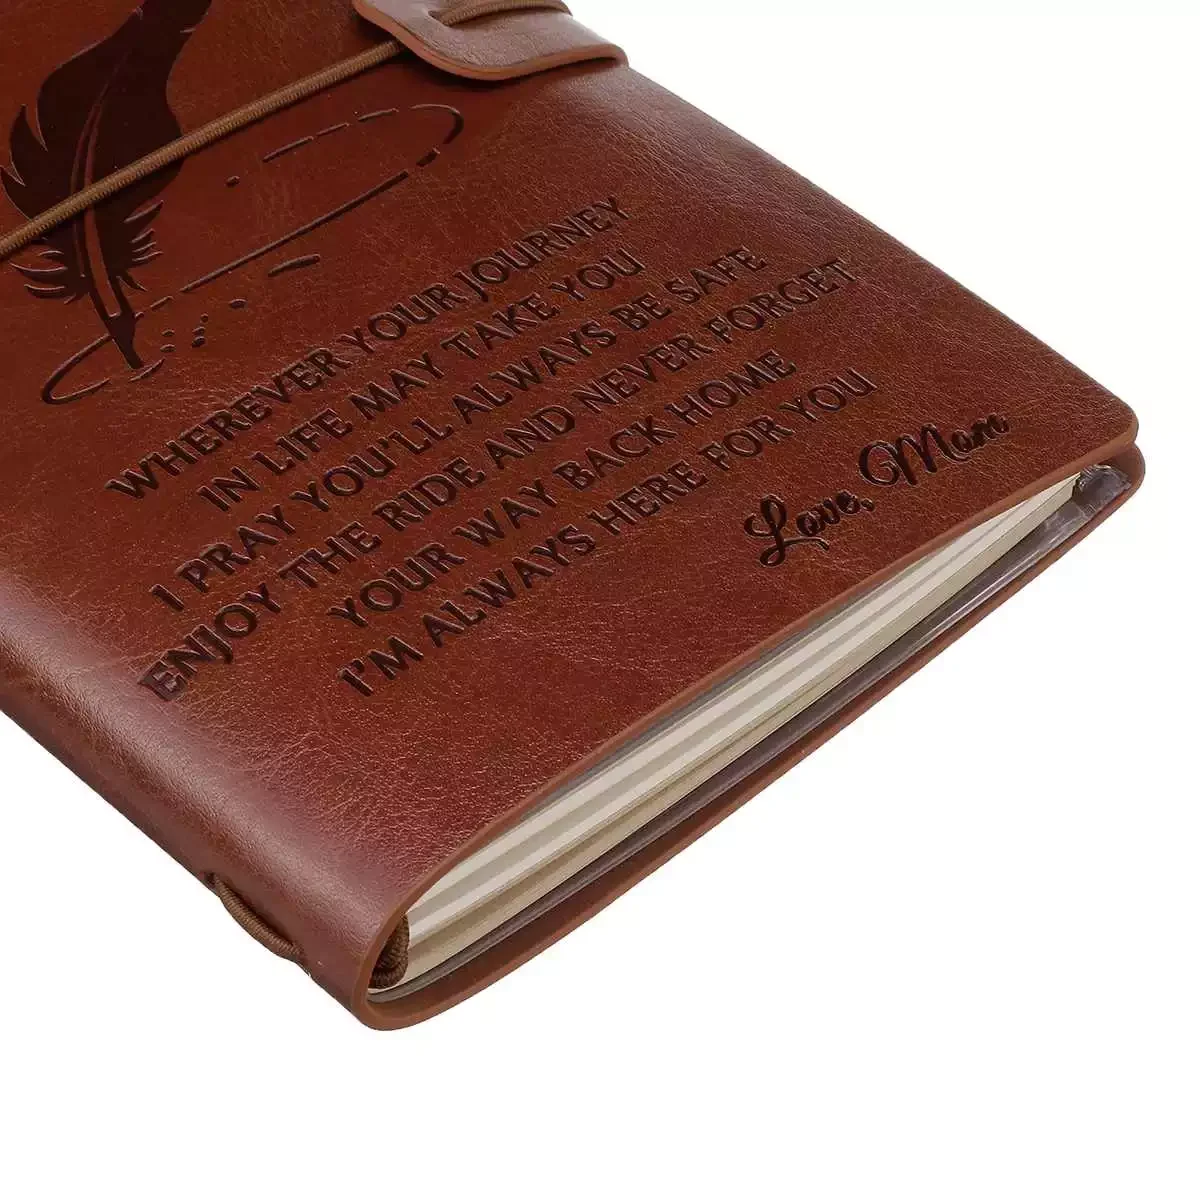 WHEREVER YOUR JOURNEY
IN LIFE MAY TAKE YOU
I PRAY YOU'LL ALWAYS BE SAFE
ENJOY THE RIDE AND NEVER FORGET
YOUR WAY BACK HOME
I'M ALWAYS HERE FOR YOU
Love, Mom